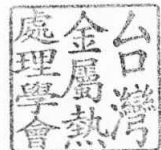 台灣
金屬熱
處理學會